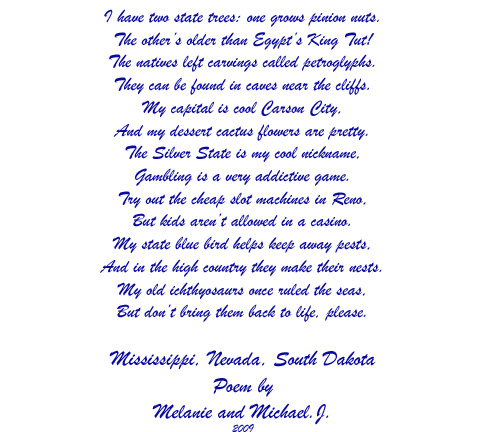 I have two state trees: one grows pinion nuts.
The other's older than Egypt's King Tut!
The natives left carvings called petroglyphs.
They can be found in caves near the cliffs.
My capital is cool Carson City,
And my dessert cactus flowers are pretty.
The Silver State is my cool nickname,
Gambling is a very addictive game.
Try out the cheap slot machines in Reno,
But kids aren't allowed in a casino.
My state blue bird helps keep away pests,
And in the high country they make their nests.
My old ichthyosaurs once ruled the seas,
But don't bring them back to life, please.
Mississippi, Nevada, South Dakota
Poem by
Melanie and Michael.J.
2009